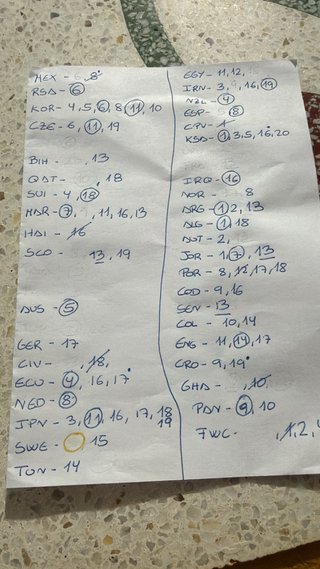 MEX - 6, 8
RSA - 6
KOR - 4, 5, 6, 8, 11, 10
CZE - 6, 11, 19
BIH - , 13
QAT - , 18
SUI - 4, 18
MAR - 7, , 11, 16, 13
HAI - 16
SCO - 13, 19
AUS - 5
GER - 17
CIV - , 18,
ECU - 4, 16, 17
NED - 8
JPN - 3, 11, 16, 17, 18
19
SWE - 15
TUN - 14
EGY - 11, 12,
IRN - 3, 9, 16, 19
NZL - 4
ESP - 8
CPV - 1
KSA - 1, 3, 5, 16, 20
IRQ - 16
NOR - 8
ARG - 1 2, 13
ALG - 1, 18
AUT - 2,
JOR - 1, 7, 13
POR - 8, 12, 17, 18
COD - 9, 16
SEN - 13
COL - 10, 14
ENG - 11, 14, 17
CRO - 9, 19
GHA - , 10,
PAN - 9, 10
FWC - , 1, 2,